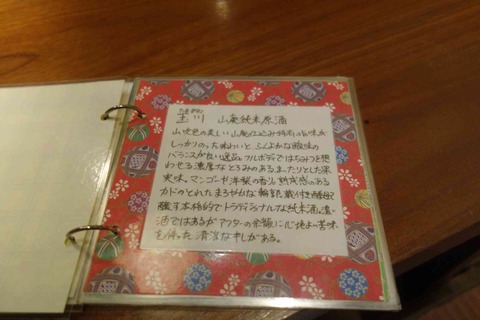 たまがわ
玉川 山廃純米原酒
山吹色の美しい山廃仕込み特有の旨味が
しっかりのった味わいと ふくよかな酸味の
バランスが良い逸品。フルボディではちみつを想
わせる濃厚なとろみのある、まったりとした果
実味。マンゴーや洋梨の香り。熟成感のある
カドのとれたまろやかな輪郭。蔵付き酵母で
醸す本格的でトラディショナルな純米酒。濃い
酒ではあるがアフターの余韻に心地よい苦味
を伴った清涼なキレがある。